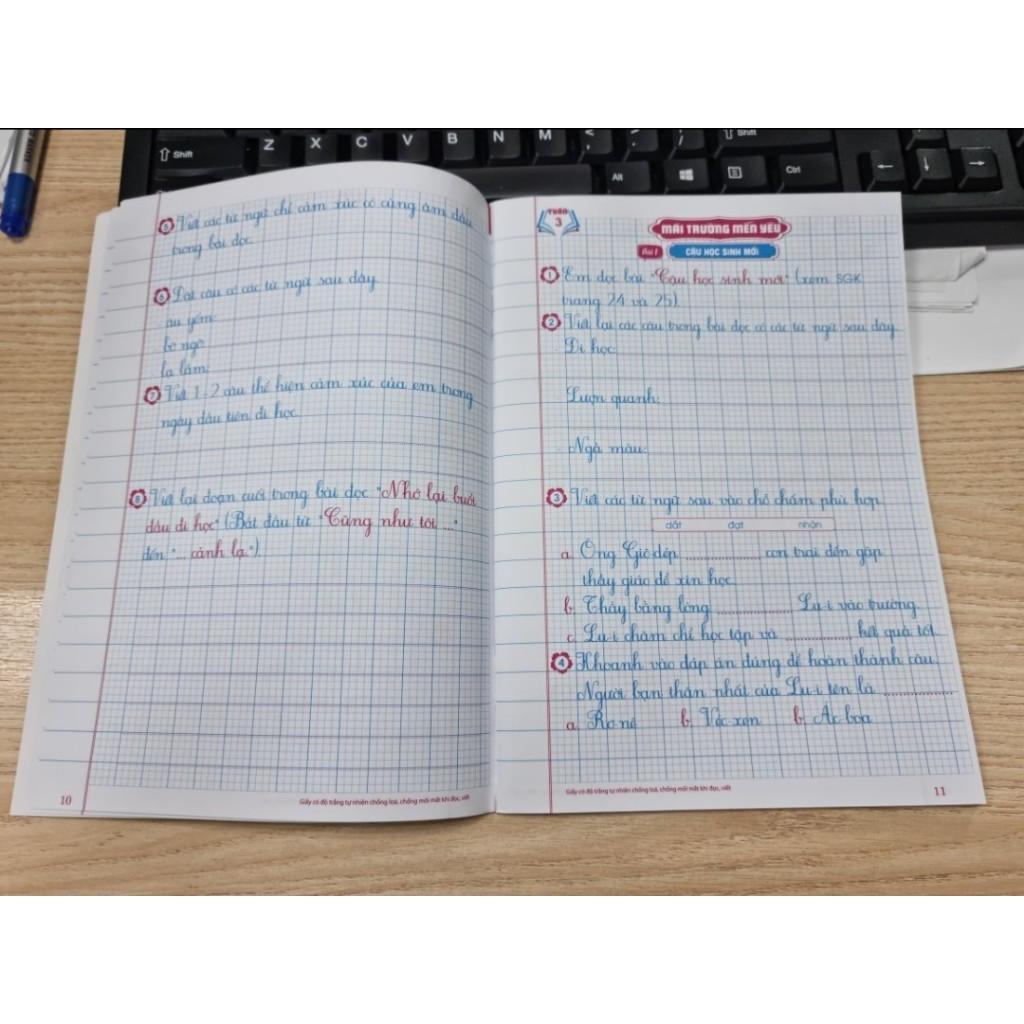 5 Viết các từ ngữ chỉ cảm xúc có cùng âm đầu
trong bài đọc.
6 Đặt câu có các từ ngữ sau đây.
- âu yếm:
- bỡ ngỡ:
- lạ lẫm:
7 Viết 1 - 2 câu thể hiện cảm xúc của em trong
ngày đầu tiên đi học.
8 Viết lại đoạn cuối trong bài đọc "Nhớ lại buổi
đầu đi học" (Bắt đầu từ "Cũng như tôi ..."
đến "... cảnh lạ")
10
Giấy có độ trắng tự nhiên chống loá, chống mỏi mắt khi đọc, viết
TUẦN
3
MÁI TRƯỜNG MẾN YÊU
Bài 1
CẬU HỌC SINH MỚI
1 Em đọc bài "Cậu học sinh mới" (xem SGK
trang 24 và 25).
2 Viết lại các câu trong bài đọc có các từ ngữ sau đây.
- Đi học:
- Lượn quanh:
- Ngả màu:
3 Viết các từ ngữ sau vào chỗ chấm phù hợp.
dắt đạt nhận
a. Ông Giô-dép .............. con trai đến gặp
thầy giáo để xin học.
b. Thầy bằng lòng .............. Lu-i vào trường.
c. Lu-i chăm chỉ học tập và .............. kết quả tốt.
4 Khoanh vào đáp án đúng để hoàn thành câu:
Người bạn thân nhất của Lu-i tên là ..............
a. Rơ-nê b. Véc-xen b. Ác-boa
Giấy có độ trắng tự nhiên chống loá, chống mỏi mắt khi đọc, viết
11
Shift
Z
X
C
V
B
N
M
Shift
Alt
Ctrl